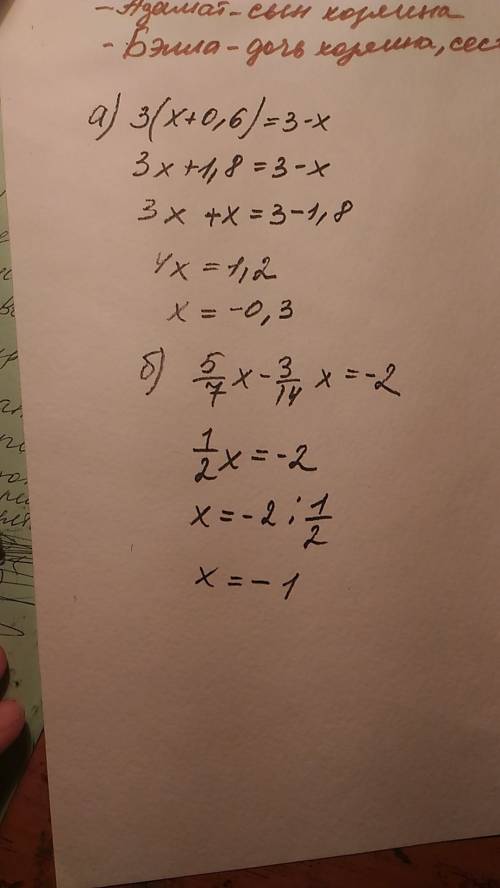 - Азамат - сын хозяина
- Бэлла - дочь хозяина, сес
а) 3(x+0,6)=3-x
3x+1,8=3-x
3x+x=3-1,8
4x=1,2
x=-0,3
б) 5/7 x - 3/14 x = -2
1/2 x = -2
x = -2 : 1/2
x = -1